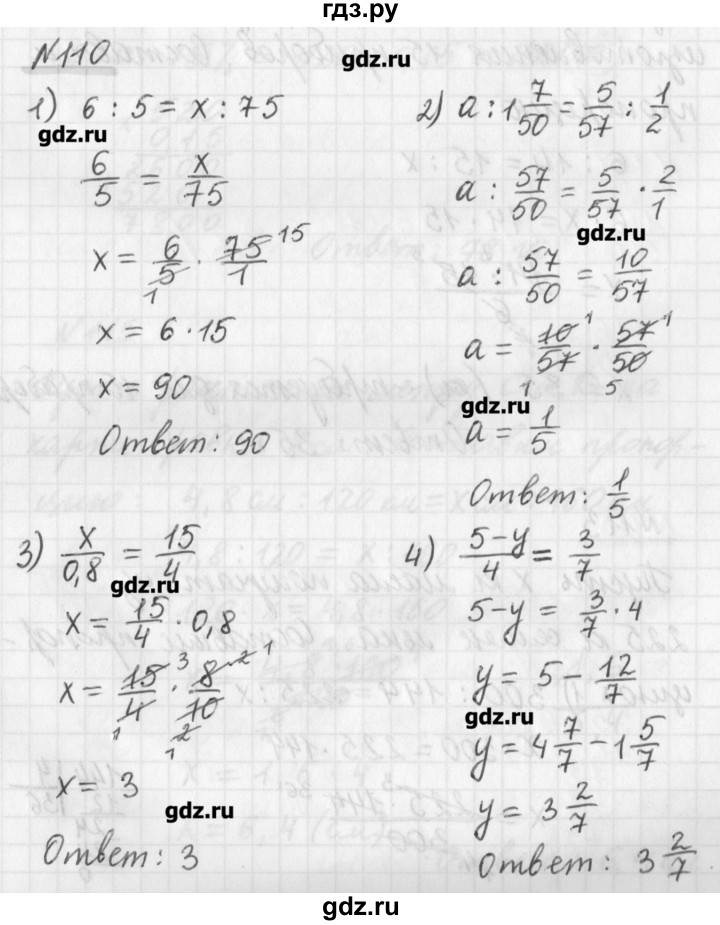 гдз.ру
№110
gdz.ru
1) 6 : 5 = x : 75
gdz.ru
6/5 = x/75
x = 6/5 · 75/1 15
1
x = 6 · 15
x = 90
Ответ: 90
2) a : 1 7/50 = 5/57 : 1/2
a : 57/50 = 5/57 · 2/1
gdz.ru
a : 57/50 = 10/57
a = 10/57 · 57/50
1 1
1 5
gdz.ru
a = 1/5
Ответ: 1/5
3) x/0,8 = 15/4
gdz.ru
x = 15/4 · 0,8
x = 15/4 · 8/10
3 2 1
1 1 2
x = 3
gdz.ru
Ответ: 3
4) (5-y)/4 = 3/7
5-y = 3/7 · 4
y = 5 - 12/7
gdz.ru
y = 4 7/7 - 1 5/7
y = 3 2/7
Ответ: 3 2/7
gdz.ru